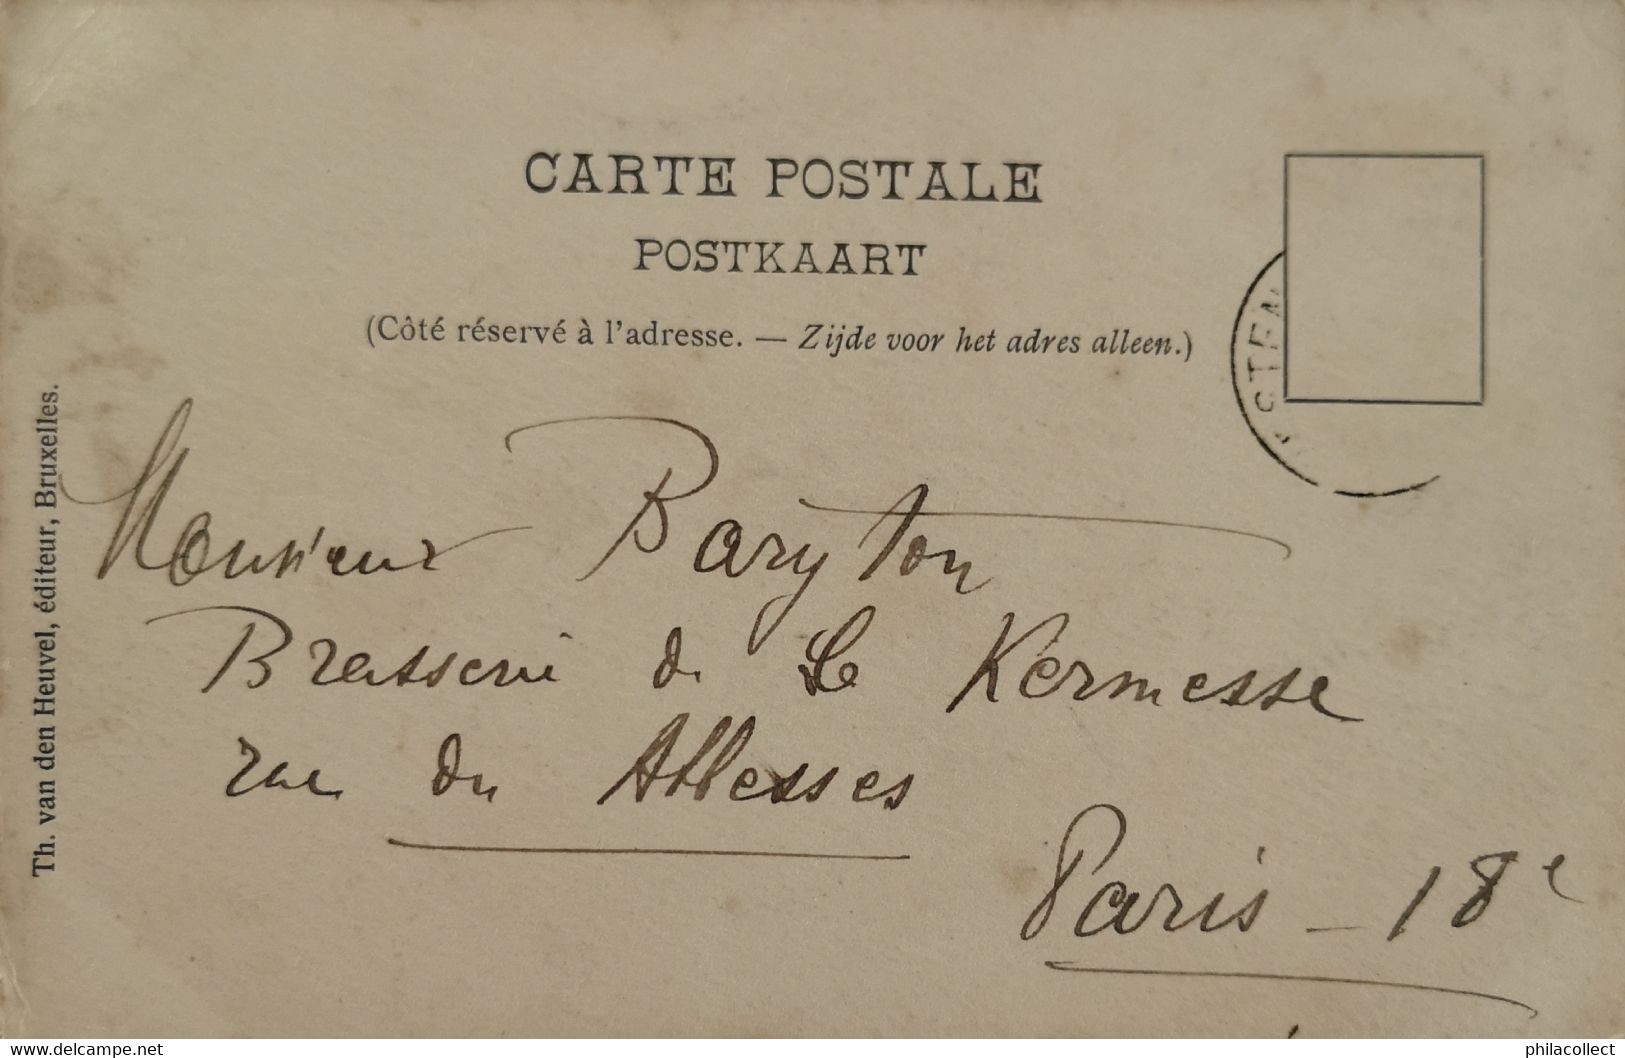 CARTE POSTALE
POSTKAART
(Côté réservé à l'adresse. — Zijde voor het adres alleen.)
Th. van den Heuvel, éditeur, Bruxelles.
Monsieur Baryton
Brasserie de la Kermesse
rue des Abbesses
Paris - 18e
© www.delcampe.net
philacollect